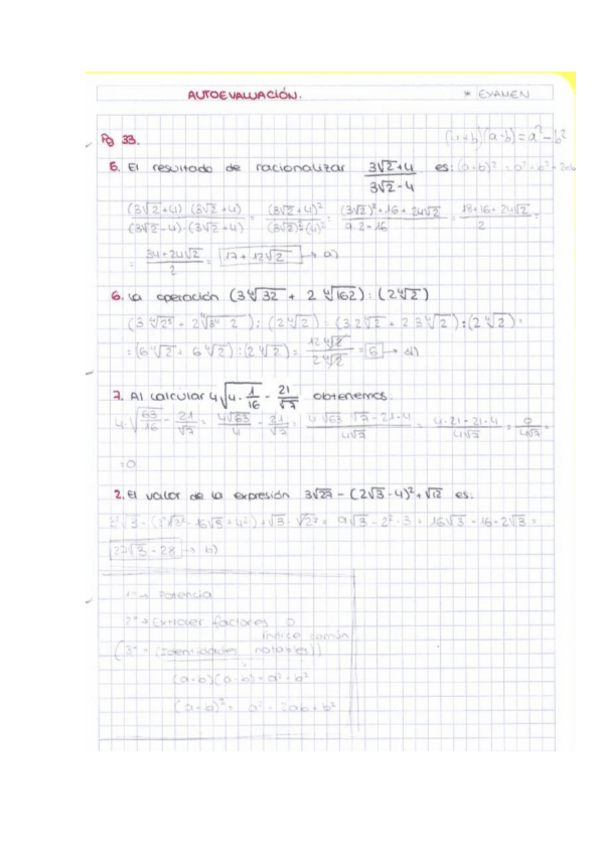 AUTOEVALUACIÓN. * EXAMEN
(a+b)(a-b)=a²-b²
Pg 33.
5. El resultado de racionalizar (3√2+4)/(3√2-4) es: (a+b)² = a²+b²+2ab
(3√2+4)·(3√2+4)/(3√2-4)·(3√2+4) = (3√2+4)²/(3√2)²-(4)² = (3√2)²+16+24√2/9·2-16 = 18+16+24√2/2 =
= 34+24√2/2 = 17+12√2 → a)
6. La operación (3∜32 + 2∜162):(2∜2)
(3∜2⁵ + 2∜3⁴·2):(2∜2) = (3·2∜2 + 2·3∜2):(2∜2) =
= (6∜2 + 6∜2):(2∜2) = 12∜2/2∜2 = 6 → d)
7. Al calcular 4√(4-1/16) - 21/√7 obtenemos:
4·√(63/16) - 21/√7 = 4√63/4 - 21/√7 = 4√63·√7-21·4/4√7 = 4·21-21·4/4√7 = 0/4√7 =
=0
2. El valor de la expresión 3√27-(2√3-4)²+√12 es:
27√3-28 → b)
1º → Potencia
2º → Extraer factores o
índice común
(3º = (Identidades notables))
(a-b)(a-b)=a²-b²
(a-b)²= a²-2ab+b²